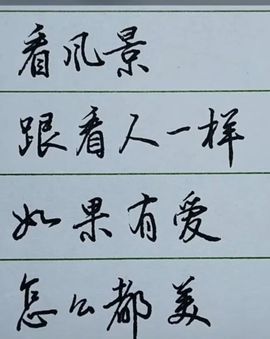 看风景
跟看人一样
如果有爱
怎么都美